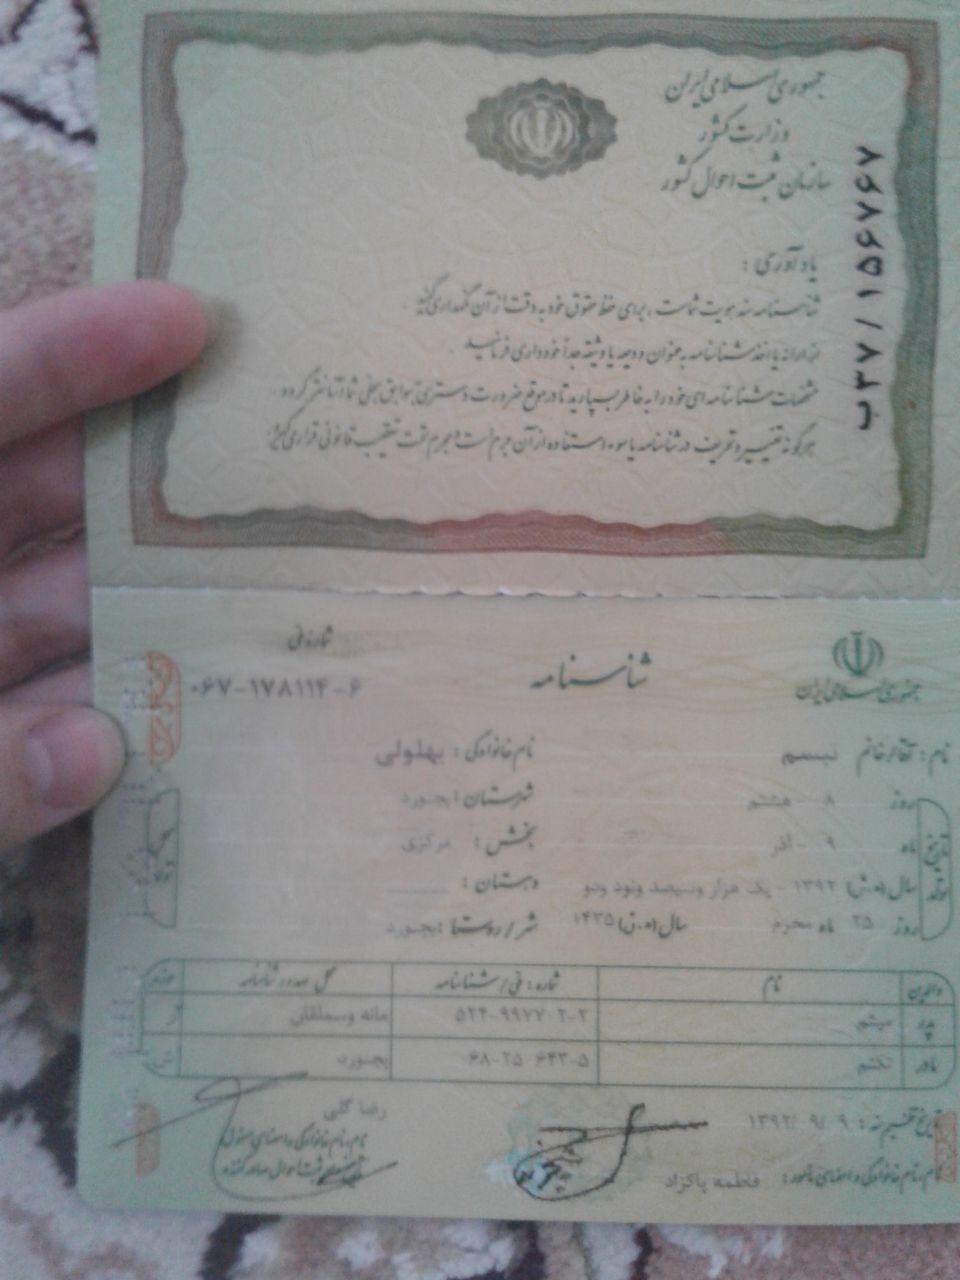 جمهوری اسلامی ایران
وزارت کشور
سازمان ثبت احوال کشور
ب۳۷/۱۵۶۷۶۷
یادآوری :
شناسنامه سند هویت شماست ، برای حفظ حقوق خود به دقت از آن نگهداری کنید .
از ارائه یا اخذ شناسنامه به عنوان ودیعه یا وثیقه جداً خودداری فرمائید .
مشخصات شناسنامه ای خود را به خاطر بسپارید تا در موقع ضرورت دسترسی به سوابق سجلی شما آسانتر گردد .
هرگونه تغییر و تحریف در شناسنامه یا سوء استفاده از آن جرم است و مجرم تحت تعقیب قانونی قرار می گیرد .
جمهوری اسلامی ایران
شناسنامه
شماره ملی
۰۶۷-۱۷۸۱۱۴-۶
نام : آقا/خانم نام خانوادگی : بهلولی
روز ۸ - هشتم شهرستان : بجنورد
ماه ۹ - آذر بخش : مرکزی
سال (ه.ش) ۱۳۹۲ - یک هزار و سیصد و نود و دو دهستان :
روز ۲۵ ماه محرم سال (ه.ق) ۱۴۳۵ شهر / روستا : بجنورد
تاریخ تولد
محل تولد
والدین نام شماره : ملی / شناسنامه محل صدور شناسنامه حوزه
پدر میثم مانه وسملقان
مادر تکتم بجنورد
تاریخ تنظیم سند : ۱۳۹۲/۰۹/۰۹
نام ، نام خانوادگی و امضای مامور : فاطمه پاکزاد
رضا گلی
نام ، نام خانوادگی و امضای مسئول
ثبت احوال صادرکننده